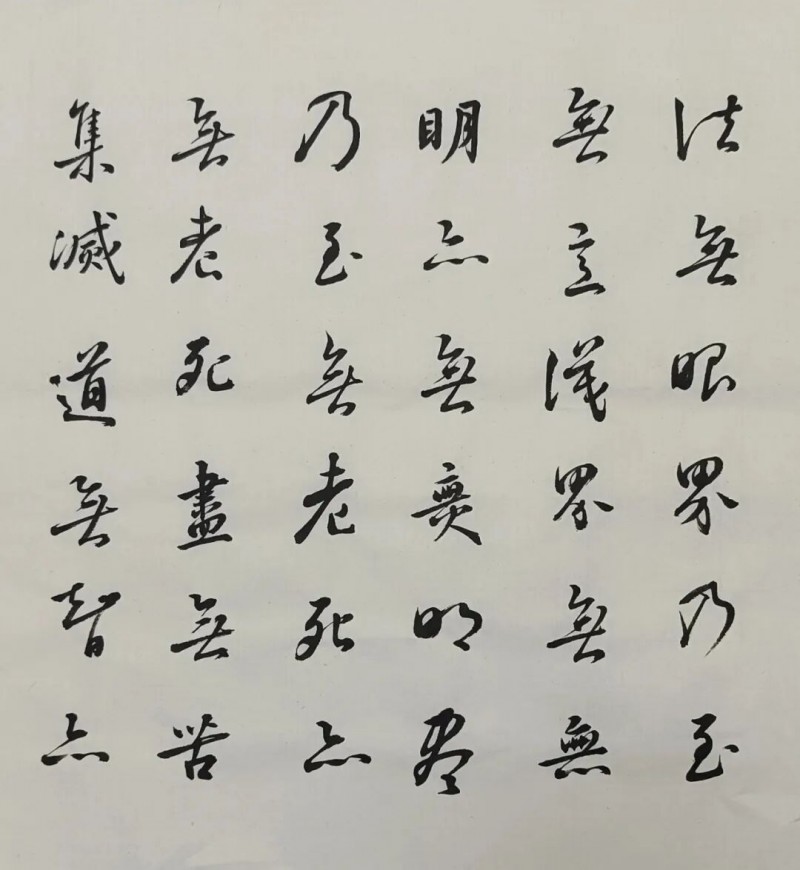 法無眼界乃至
無意識界無無
明亦無無明盡
乃至無老死亦
無老死盡無苦
集滅道無智亦